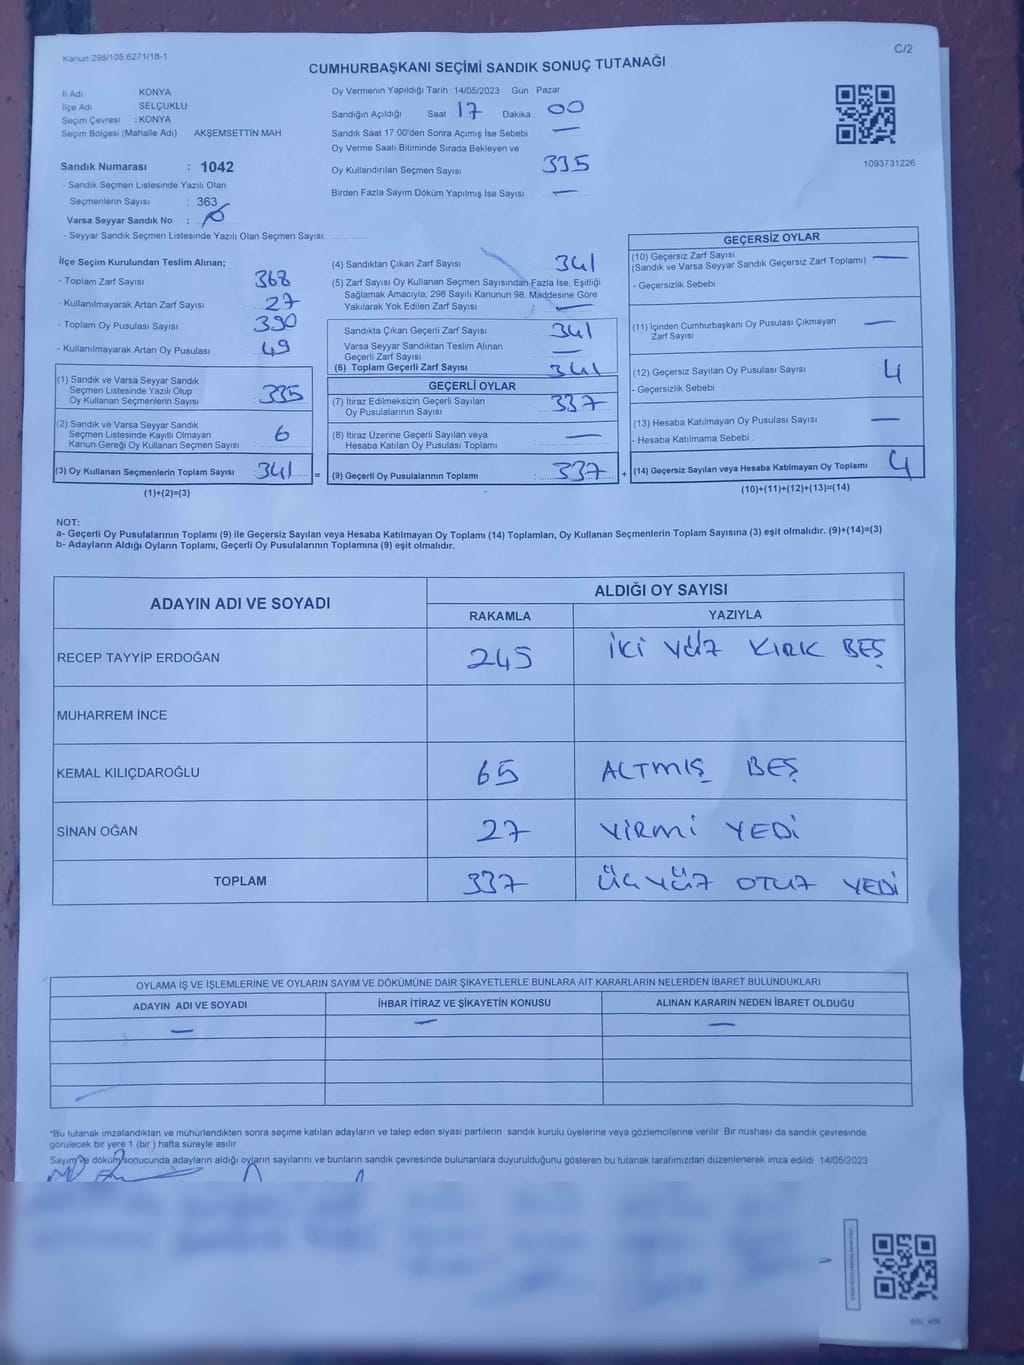 Kanun 298/105,6271/18-1
C/2
CUMHURBAŞKANI SEÇİMİ SANDIK SONUÇ TUTANAĞI
İl Adı KONYA
İlçe Adı SELÇUKLU
Seçim Çevresi : KONYA
Seçim Bölgesi (Mahalle Adı) AKŞEMSETTİN MAH
Sandık Numarası : 1042
- Sandık Seçmen Listesinde Yazılı Olan
Seçmenlerin Sayısı : 363
Varsa Seyyar Sandık No :
- Seyyar Sandık Seçmen Listesinde Yazılı Olan Seçmen Sayısı:
Oy Vermenin Yapıldığı Tarih : 14/05/2023 Gün Pazar
Sandığın Açıldığı Saat 17 Dakika 00
Sandık Saat 17 00'den Sonra Açımış İse Sebebi —
Oy Verme Saati Bitiminde Sırada Bekleyen ve
Oy Kullandırılan Seçmen Sayısı 335
Birden Fazla Sayım Döküm Yapılmış İse Sayısı —
1093731226
İlçe Seçim Kurulundan Teslim Alınan;
- Toplam Zarf Sayısı : 368
- Kullanılmayarak Artan Zarf Sayısı : 27
- Toplam Oy Pusulası Sayısı : 390
- Kullanılmayarak Artan Oy Pusulası : 49
(1) Sandık ve Varsa Seyyar Sandık
Seçmen Listesinde Yazılı Olup
Oy Kullanan Seçmenlerin Sayısı : 335
(2) Sandık ve Varsa Seyyar Sandık
Seçmen Listesinde Kayıtlı Olmayan
Kanun Gereği Oy Kullanan Seçmen Sayısı : 6
(3) Oy Kullanan Seçmenlerin Toplam Sayısı : 341 =
(1)+(2)=(3)
(4) Sandıktan Çıkan Zarf Sayısı 341
(5) Zarf Sayısı Oy Kullanan Seçmen Sayısından Fazla İse, Eşitliği
Sağlamak Amacıyla; 298 Sayılı Kanunun 98. Maddesine Göre
Yakılarak Yok Edilen Zarf Sayısı : —
Sandıkta Çıkan Geçerli Zarf Sayısı : 341
Varsa Seyyar Sandıktan Teslim Alınan
Geçerli Zarf Sayısı —
(6) Toplam Geçerli Zarf Sayısı : 341
GEÇERLİ OYLAR
(7) İtiraz Edilmeksizin Geçerli Sayılan
Oy Pusulalarının Sayısı : 337
(8) İtiraz Üzerine Geçerli Sayılan veya
Hesaba Katılan Oy Pusulası Toplamı : —
(9) Geçerli Oy Pusulalarının Toplamı : 337 +
GEÇERSİZ OYLAR
(10) Geçersiz Zarf Sayısı —
(Sandık ve Varsa Seyyar Sandık Geçersiz Zarf Toplamı)
- Geçersizlik Sebebi
(11) İçinden Cumhurbaşkanı Oy Pusulası Çıkmayan —
Zarf Sayısı
(12) Geçersiz Sayılan Oy Pusulası Sayısı 4
- Geçersizlik Sebebi
(13) Hesaba Katılmayan Oy Pusulası Sayısı —
- Hesaba Katılmama Sebebi :
(14) Geçersiz Sayılan veya Hesaba Katılmayan Oy Toplamı 4
(10)+(11)+(12)+(13)=(14)
NOT:
a- Geçerli Oy Pusulalarının Toplamı (9) ile Geçersiz Sayılan veya Hesaba Katılmayan Oy Toplamı (14) Toplamları, Oy Kullanan Seçmenlerin Toplam Sayısına (3) eşit olmalıdır. (9)+(14)=(3)
b- Adayların Aldığı Oyların Toplamı, Geçerli Oy Pusulalarının Toplamına (9) eşit olmalıdır.
ADAYIN ADI VE SOYADI
ALDIĞI OY SAYISI
RAKAMLA YAZIYLA
RECEP TAYYİP ERDOĞAN 245 İKİ YÜZ KIRK BEŞ
MUHARREM İNCE
KEMAL KILIÇDAROĞLU 65 ALTMIŞ BEŞ
SİNAN OĞAN 27 YİRMİ YEDİ
TOPLAM 337 ÜÇ YÜZ OTUZ YEDİ
OYLAMA İŞ VE İŞLEMLERİNE VE OYLARIN SAYIM VE DÖKÜMÜNE DAİR ŞİKAYETLERLE BUNLARA AİT KARARLARIN NELERDEN İBARET BULUNDUKLARI
ADAYIN ADI VE SOYADI İHBAR İTİRAZ VE ŞİKAYETİN KONUSU ALINAN KARARIN NEDEN İBARET OLDUĞU
— — —
*Bu tutanak imzalandıktan ve mühürlendikten sonra seçime katılan adayların ve talep eden siyasi partilerin sandık kurulu üyelerine veya gözlemcilerine verilir Bir nüshası da sandık çevresinde
görülecek bir yere 1 (bir ) hafta süreyle asılır.
Sayım ve döküm sonucunda adayların aldığı oyların sayılarını ve bunların sandık çevresinde bulunanlara duyurulduğunu gösteren bu tutanak tarafımızdan düzenlenerek imza edildi 14/05/2023